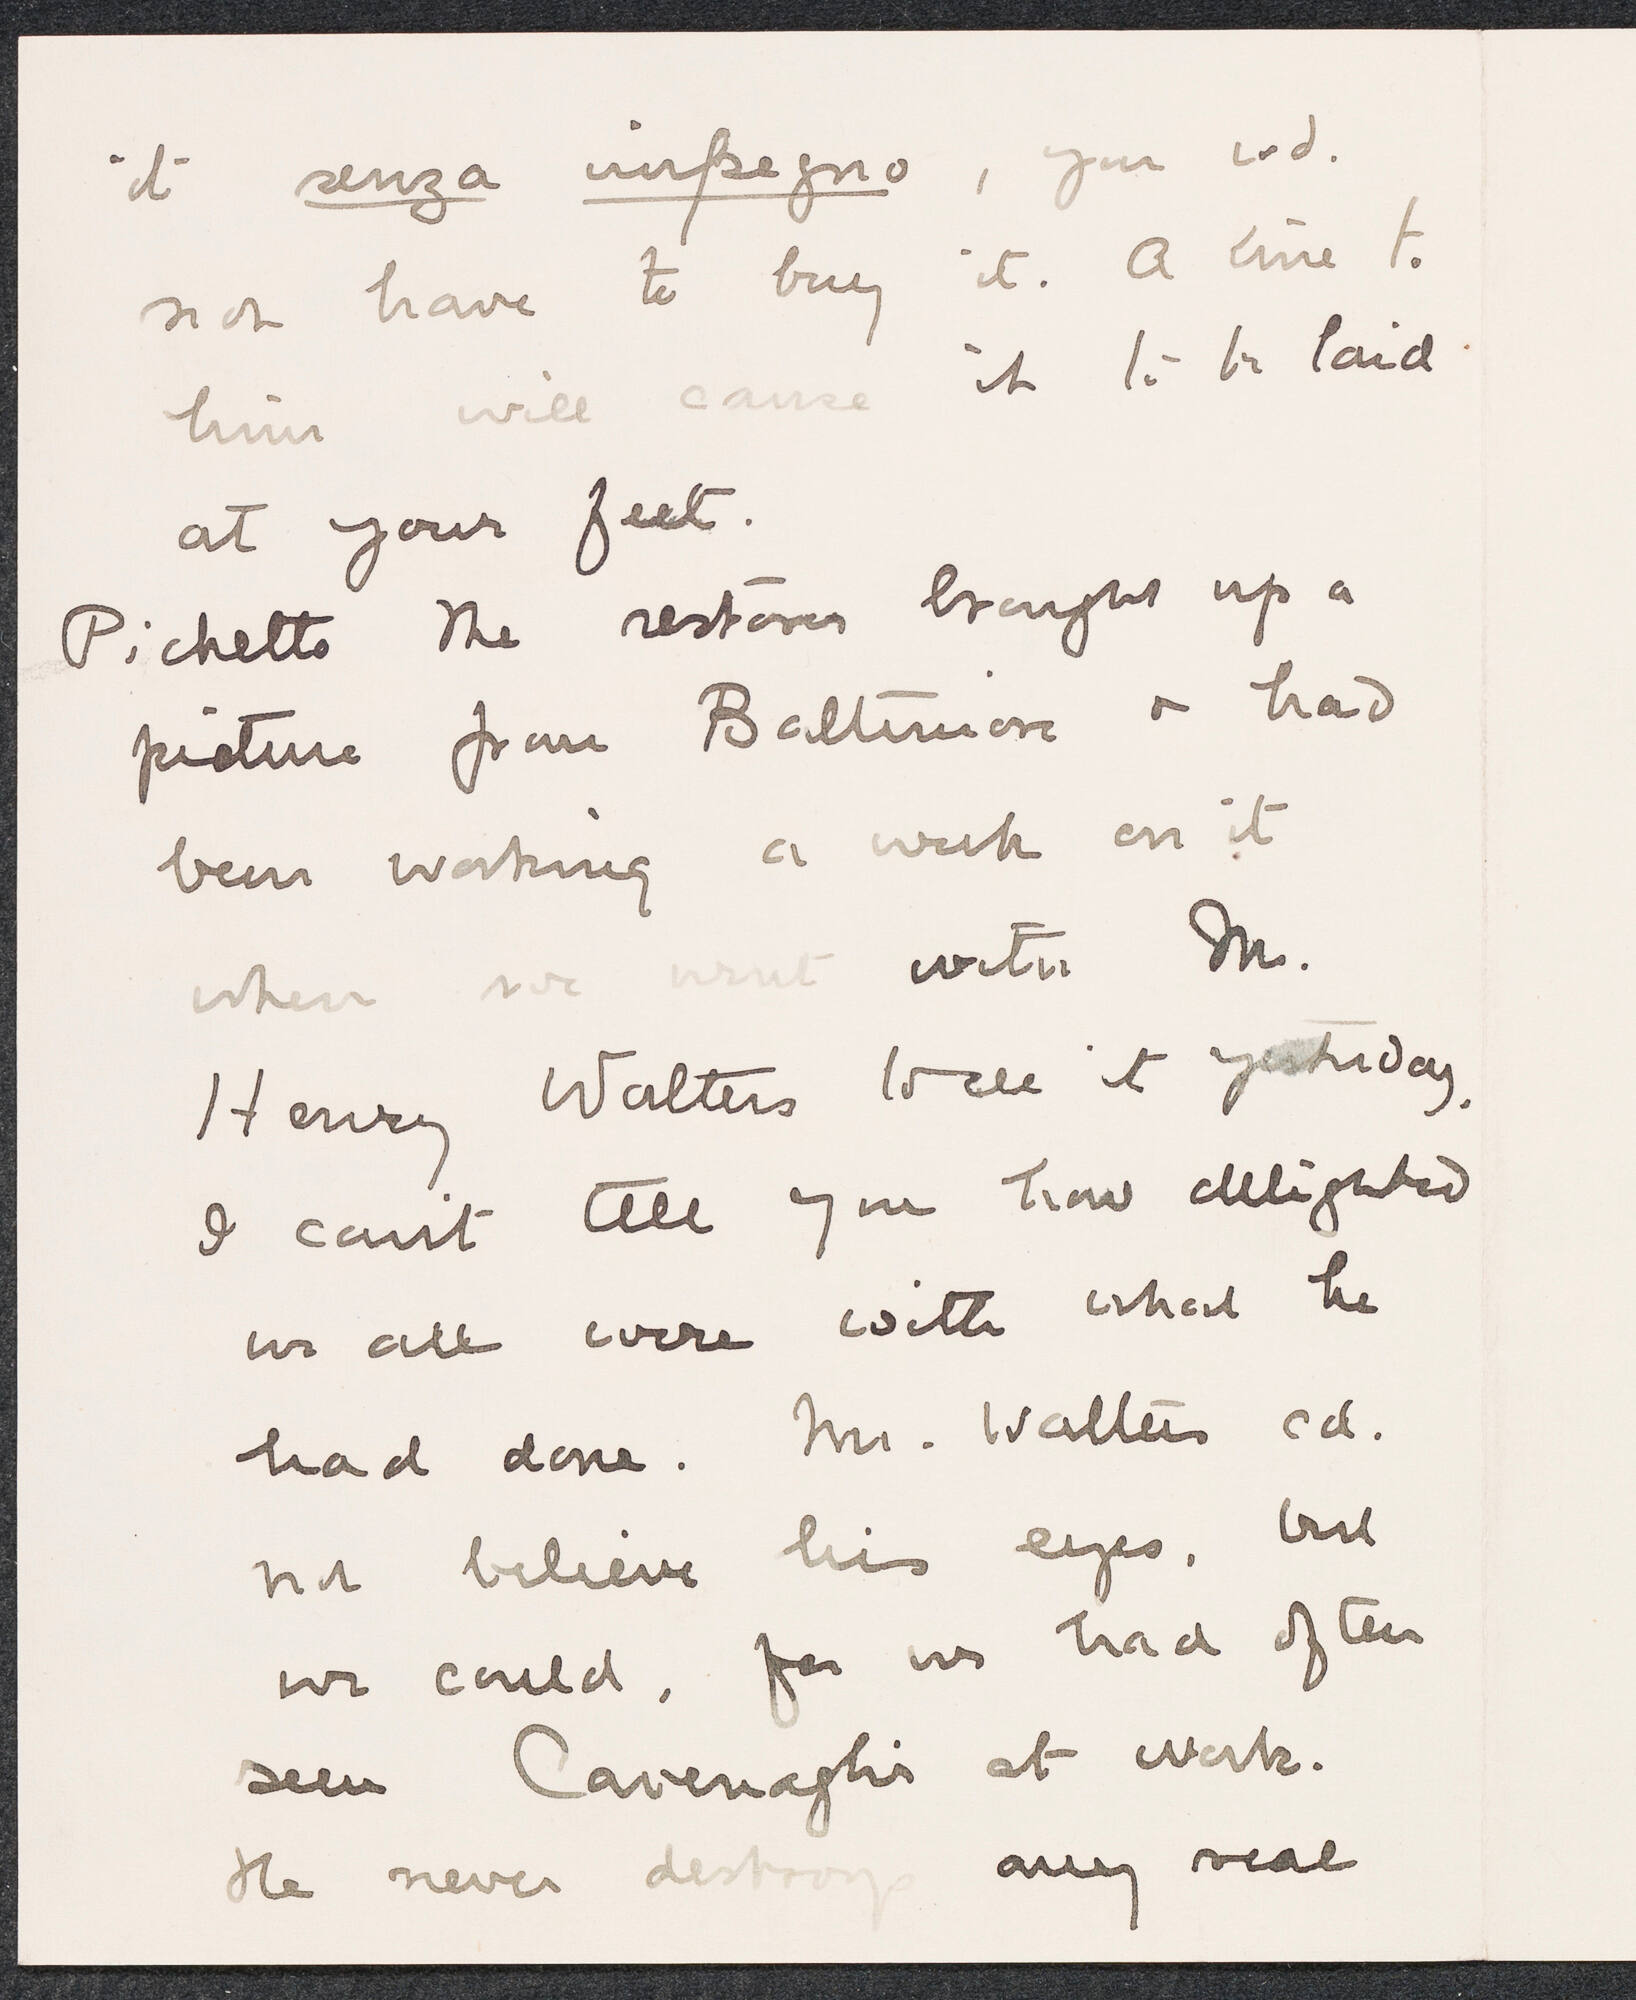 it senza impegno, you wd.
not have to buy it. A line to
him will cause it to be laid
at your feet.
Pichetto the restorer brought up a
picture from Baltimore & had
been working a week on it
when we went with Mr.
Henry Walters to see it yesterday.
I can't tell you how delighted
we all were with what he
had done. Mr. Walters cd.
not believe his eyes, but
we could, for we had often
seen Cavenaghi at work.
He never destroys any real